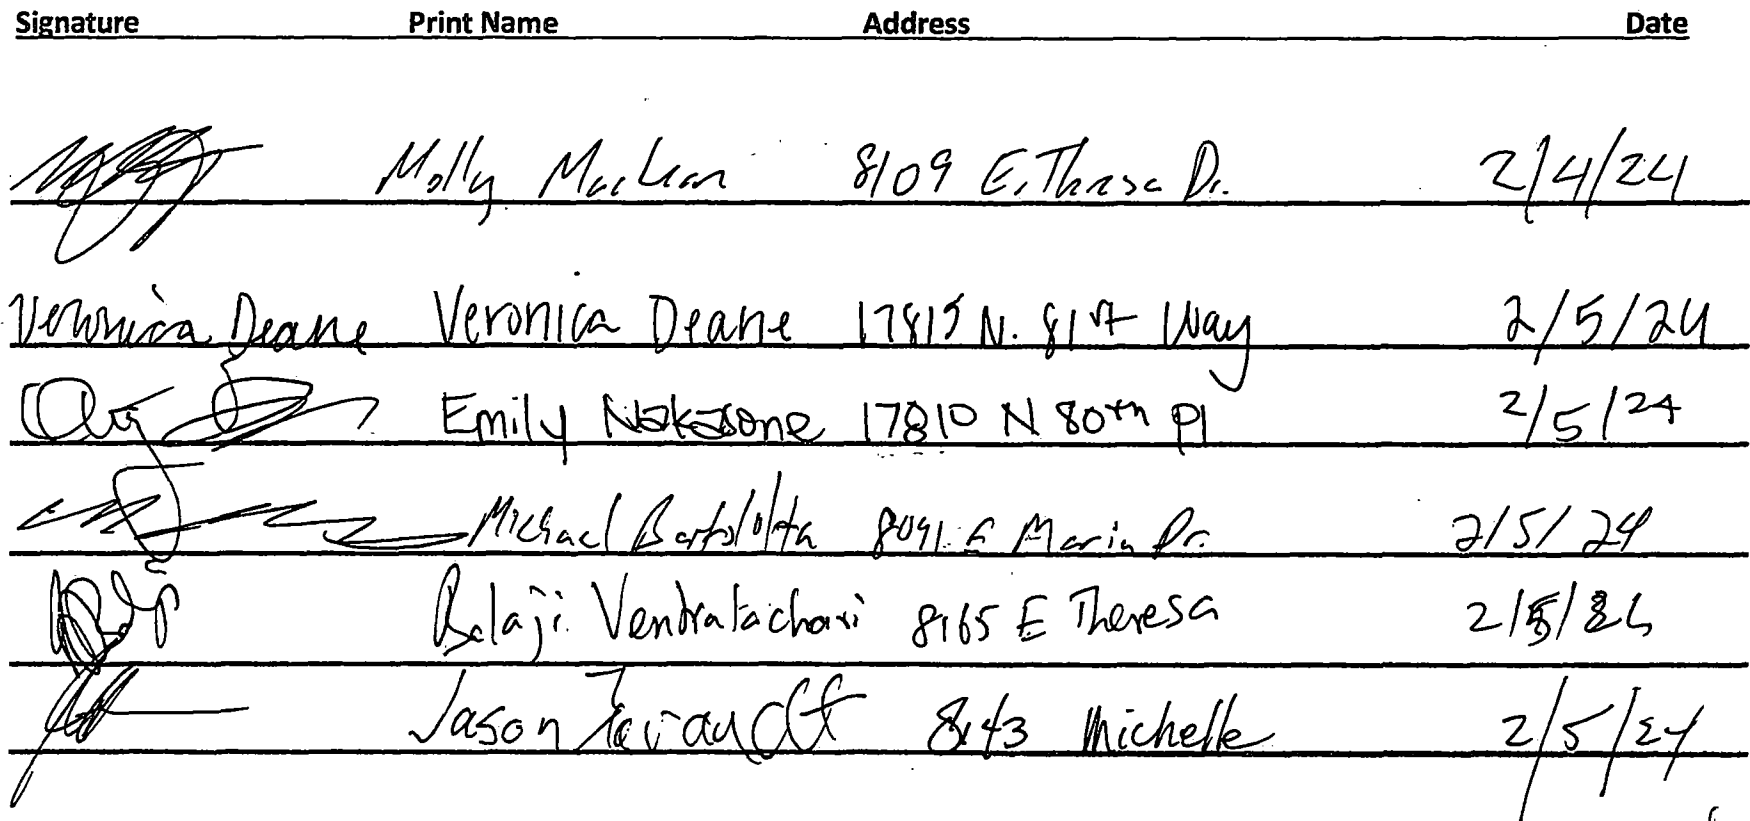 Signature Print Name Address Date
Molly MacLean 8109 E. Theresa Dr. 2/4/24
Veronica Deane Veronica Deane 17815 N. 81st Way 2/5/24
Emily Nakasone 17810 N 80th Pl 2/5/24
Michael Bartolotta 8091 E Maria Dr. 2/5/24
Balaji 8165 E Theresa
Jason 8143 Michelle 2/5/24